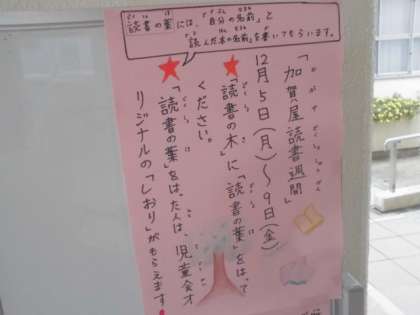 読書の葉には、「自分の名前」と
「読んだ本の名前」を書いてもらいます。
「加賀屋読書週間」
12月5日(月)〜9日(金)
★「読書の木」に「読書の葉」をはって
ください。
★「読書の葉」をはった人は、児童会オ
リジナルの「しおり」がもらえます